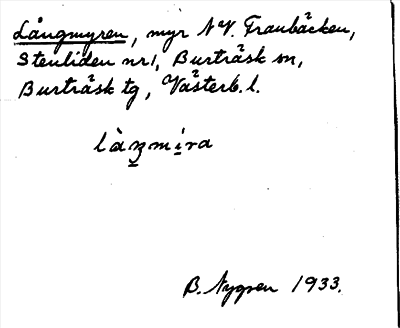 Långmyren, myr NV. Franbäcken,
Stenliden nr 1, Burträsk sn,
Burträsk tg, Västerb. l.
làŋmi̱ra
B. Nygren 1933.